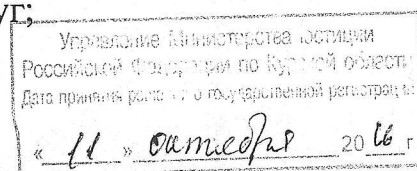 уг;
Управление Министерства юстиции
Российской Федерации по Курской области
Дата принятия решения о государственной регистрации:
« 11 » октября 2016 г